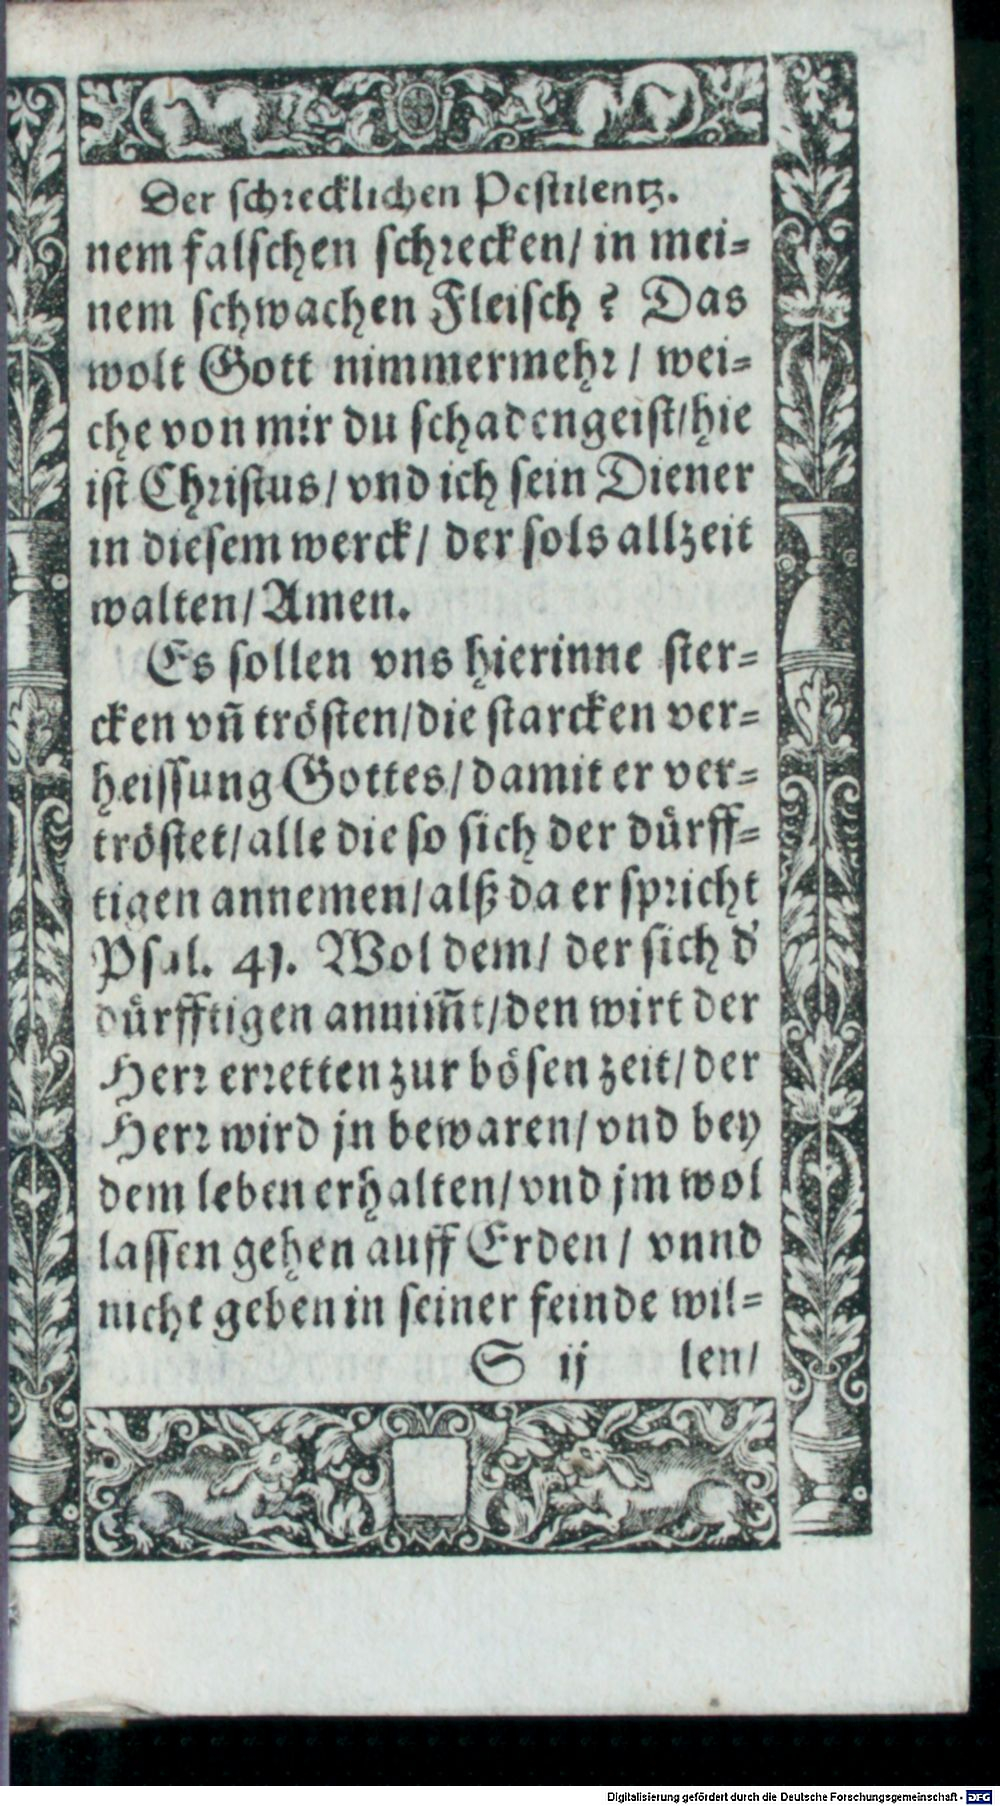 Der schrecklichen Pestilentz.
nem falschen schrecken/ in mei-
nem schwachen Fleisch? Das
wolt Gott nimmermehr/ wei-
che von mir du schadengeist/hie
ist Christus/ vnd ich sein Diener
in diesem werck/ der sols allzeit
walten/ Amen.
Es sollen vns hierinne ster-
cken vñ trösten/die starcken ver-
heissung Gottes/ damit er ver-
tröstet/alle die so sich der dürff-
tigen annemen/alß da er spricht
Psal. 41. Wol dem/ der sich d'
dürfftigen annim̃t/den wirt der
Herr erretten zur bösen zeit/ der
Herr wird jn bewaren/ vnd bey
dem leben erhalten/ vnd jm wol
lassen gehen auff Erden/ vnnd
nicht geben in seiner feinde wil-
S ij len/
Digitalisierung gefördert durch die Deutsche Forschungsgemeinschaft - DFG